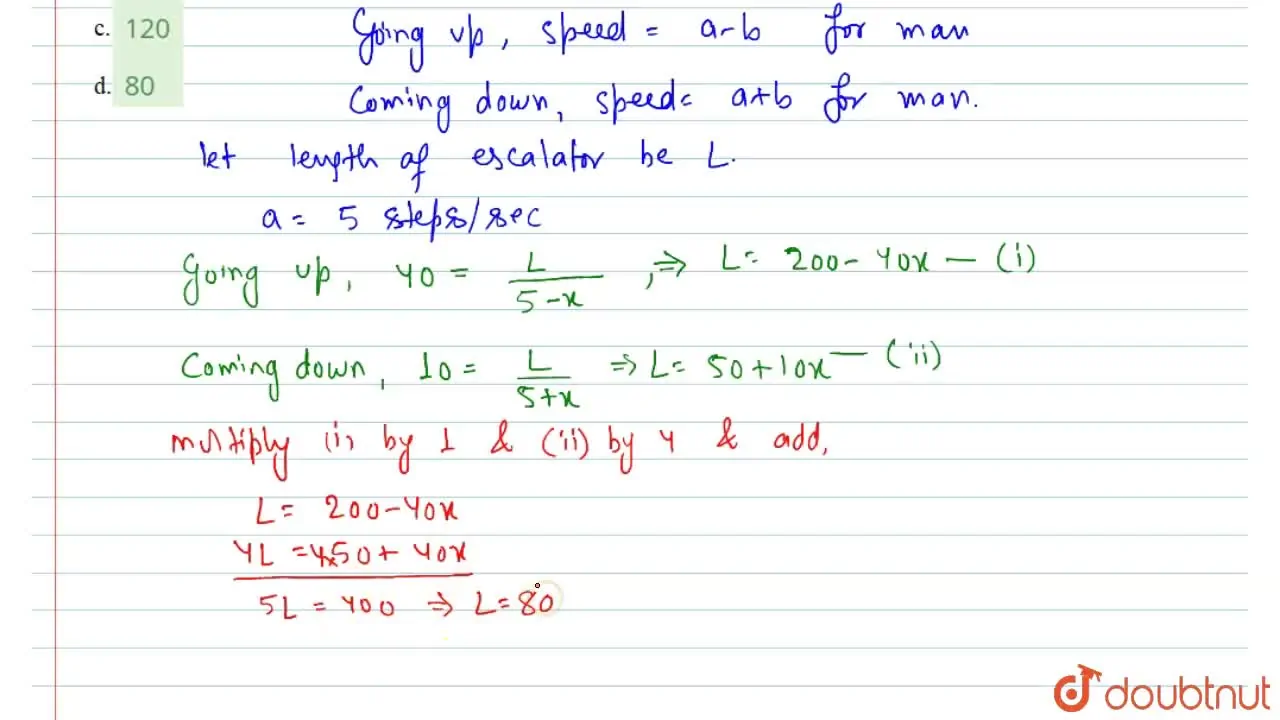 c. 120
Going up, speed = a-b for man
d. 80
Coming down, speed= a+b for man.
let length of escalator be L.
a= 5 steps/sec
Going up, 40 = L/(5-x) , ⇒ L= 200- 40x — (i)
Coming down, 10 = L/(5+x) ⇒ L= 50+10x — (ii)
multiply (i) by 1 & (ii) by 4 & add,
L= 200-40x
4L =4×50+ 40x
5L = 400 ⇒ L=80
doubtnut